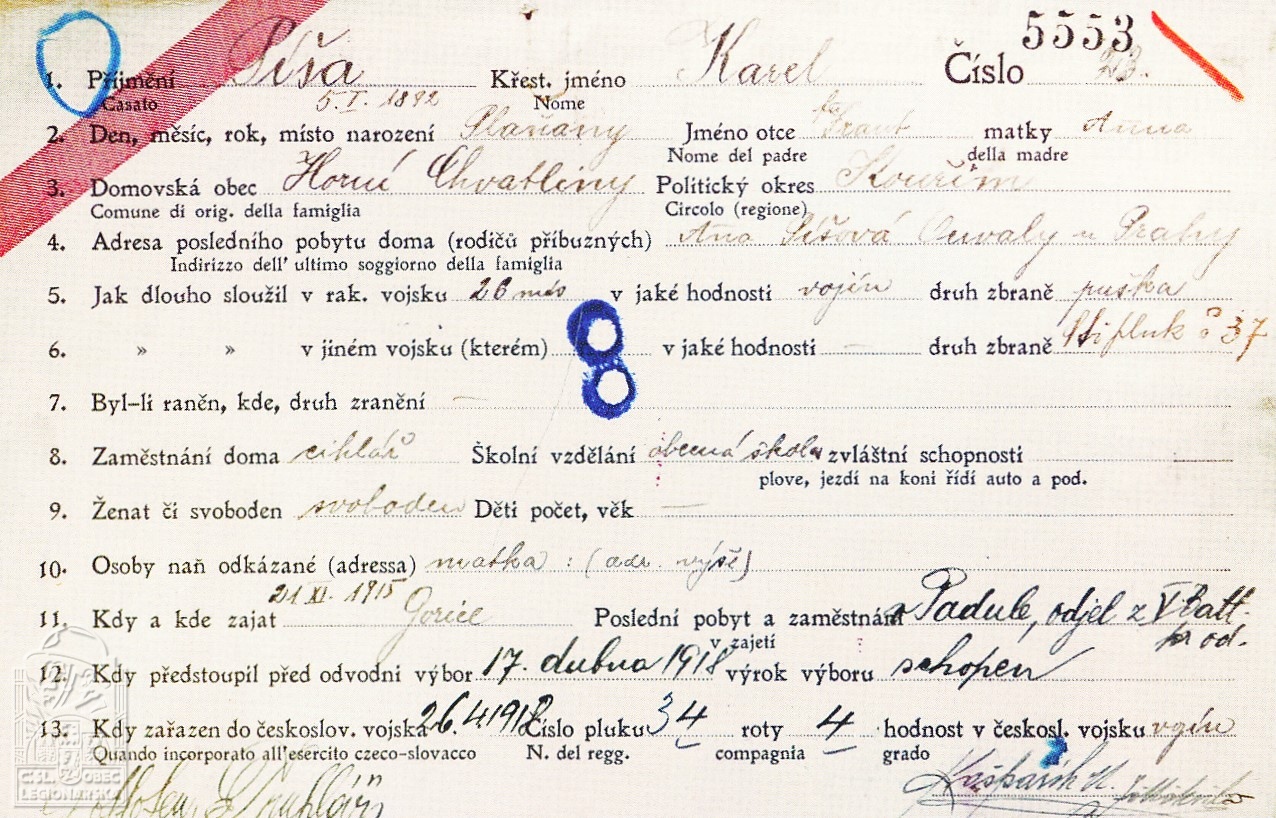 5553
1. Příjmení Síša Křest. jméno Karel Číslo
Casato 5. I. 1892 Nome
2. Den, měsíc, rok, místo narození Plaňany Jméno otce Frant matky Anna
Nome del padre della madre
3. Domovská obec Horní Chvatliny Politický okres Kouřim
Comune di orig. della famiglia Circolo (regione)
4. Adresa posledního pobytu doma (rodičů příbuzných) Ana Síšová Ouvaly u Prahy
Indirizzo dell' ultimo soggiorno della famiglia
5. Jak dlouho sloužil v rak. vojsku 26 měs v jaké hodnosti vojín druh zbraně puška
6. » » v jiném vojsku (kterém) v jaké hodnosti — druh zbraně 37
7. Byl-li raněn, kde, druh zranění —
8. Zaměstnání doma cihlář Školní vzdělání obecná škola zvláštní schopnosti
plove, jezdí na koni řídí auto a pod.
9. Ženat či svoboden svoboden Děti počet, věk —
10. Osoby naň odkázané (adressa) matka : (adr. výše)
21 XI. 1915
11. Kdy a kde zajat Gorice Poslední pobyt a zaměstnán Padule, odjel z V Batt.
v zajetí
12. Kdy předstoupil před odvodní výbor 17. dubna 1918 výrok výboru schopen
13. Kdy zařazen do českoslov. vojska 26 4 1918 Číslo pluku 34 roty 4 hodnost v českosl. vojsku vojín
Quando incorporato all'esercito czeco-slovacco N. del regg. compagnia grado
Kašpárik
ČSL. OBEC
LEGIONÁŘSKÁ